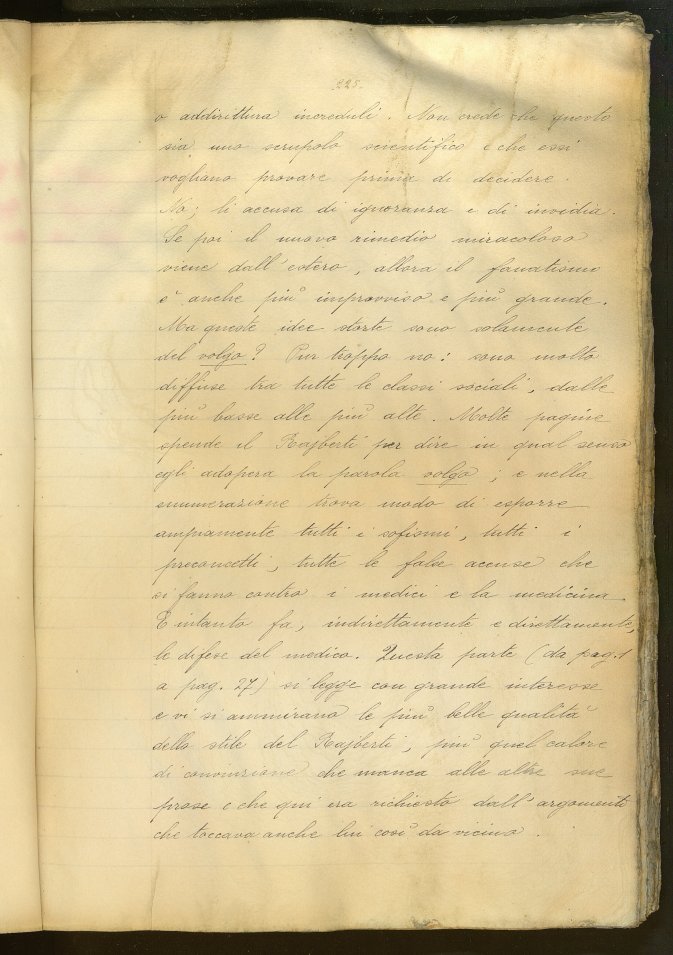 225.
o addirittura increduli. Non crede che questo
sia uno scrupolo scientifico e che essi
vogliano provare prima di decidere.
No; li accusa di ignoranza e di invidia.
Se poi il nuovo rimedio miracoloso
viene dall'estero, allora il fanatismo
è anche più improvviso e più grande.
Ma queste idee storte sono solamente
del volgo? Pur troppo no: sono molto
diffuse tra tutte le classi sociali, dalle
più basse alle più alte. Molte pagine
spende il Rajberti per dire in qual senso
egli adopera la parola volgo; e nella
enumerazione trova modo di esporre
ampiamente tutti i sofismi, tutti i
preconcetti, tutte le false accuse che
si fanno contro i medici e la medicina
E intanto fa, indirettamente e direttamente,
le difese del medico. Questa parte (da pag. 1
a pag. 27) si legge con grande interesse
e vi si ammirano le più belle qualità
dello stile del Rajberti, più quel calore
di convinzione che manca alle altre sue
prose e che qui era richiesto dall'argomento
che toccava anche lui così da vicino.